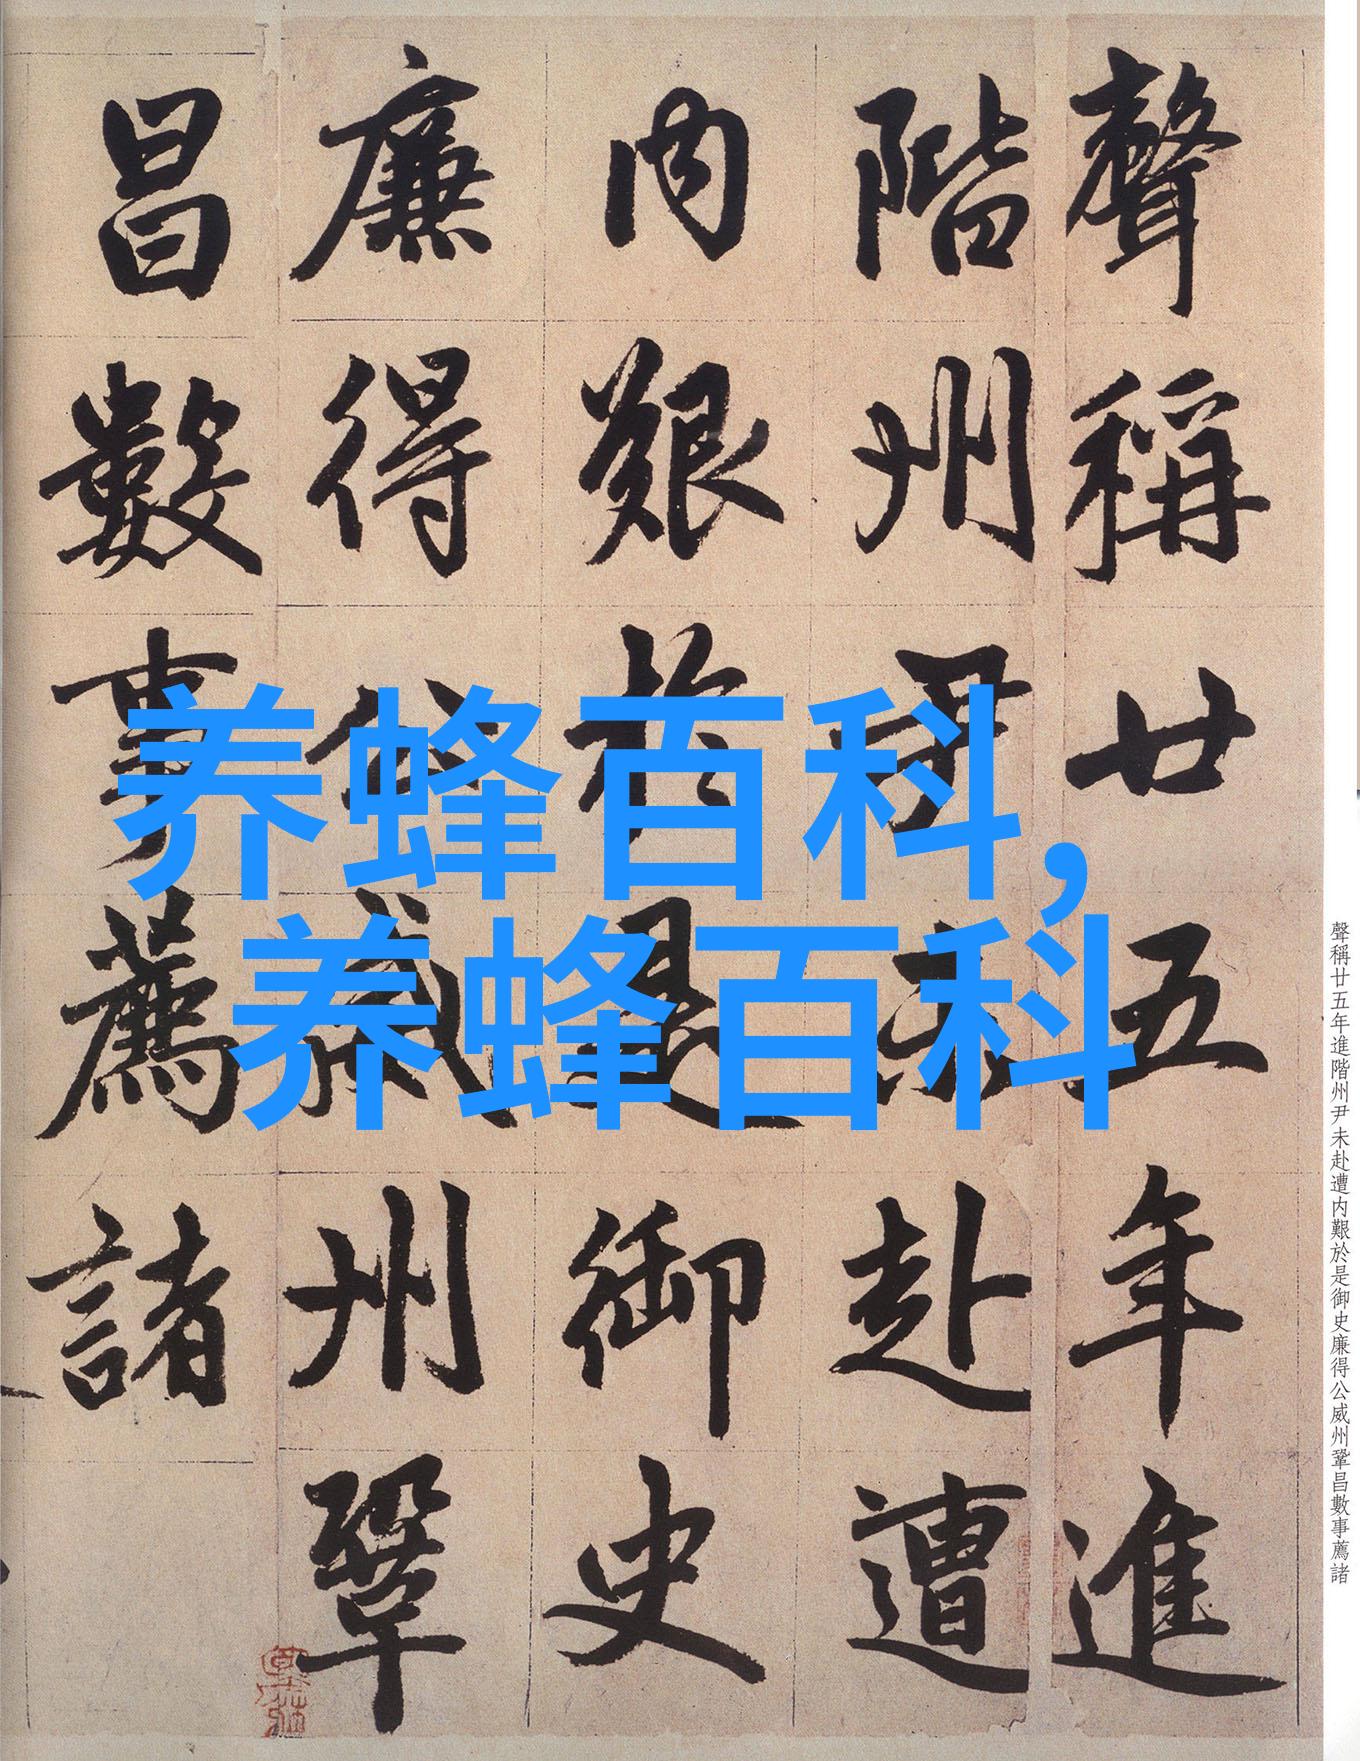 聲稱廿五年進
階州尹未赴遭
内艱於是御史
廉得公威州鞏
昌數事薦諸
养蜂百科,
养蜂百科
聲稱廿五年進階州尹未赴遭内艱於是御史廉得公威州鞏昌數事薦諸